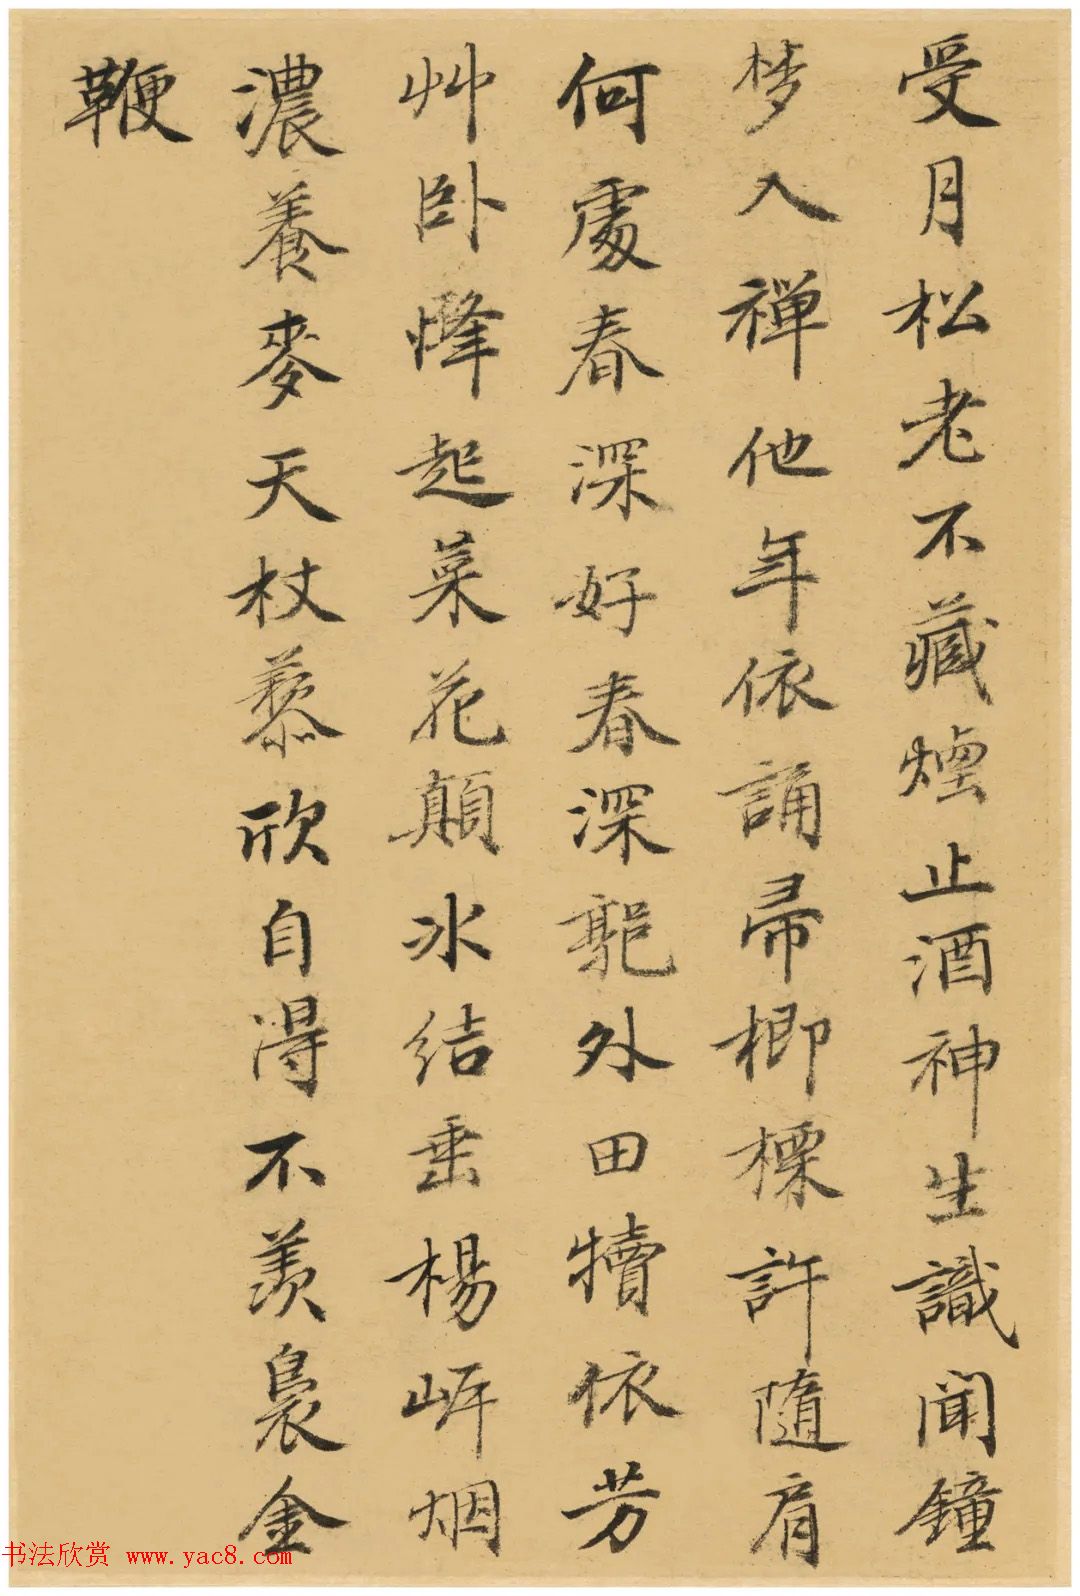 受月松老不藏煙止酒神生識聞鐘
梦入禅他年依誦帚楖標許隨肩
何處春深好春深郭外田犢依芳
艸卧烽起菜花顛水結垂楊岸烟
濃養麥天杖藜欣自得不羨裊金
鞭
书法欣赏 www.yac8.com